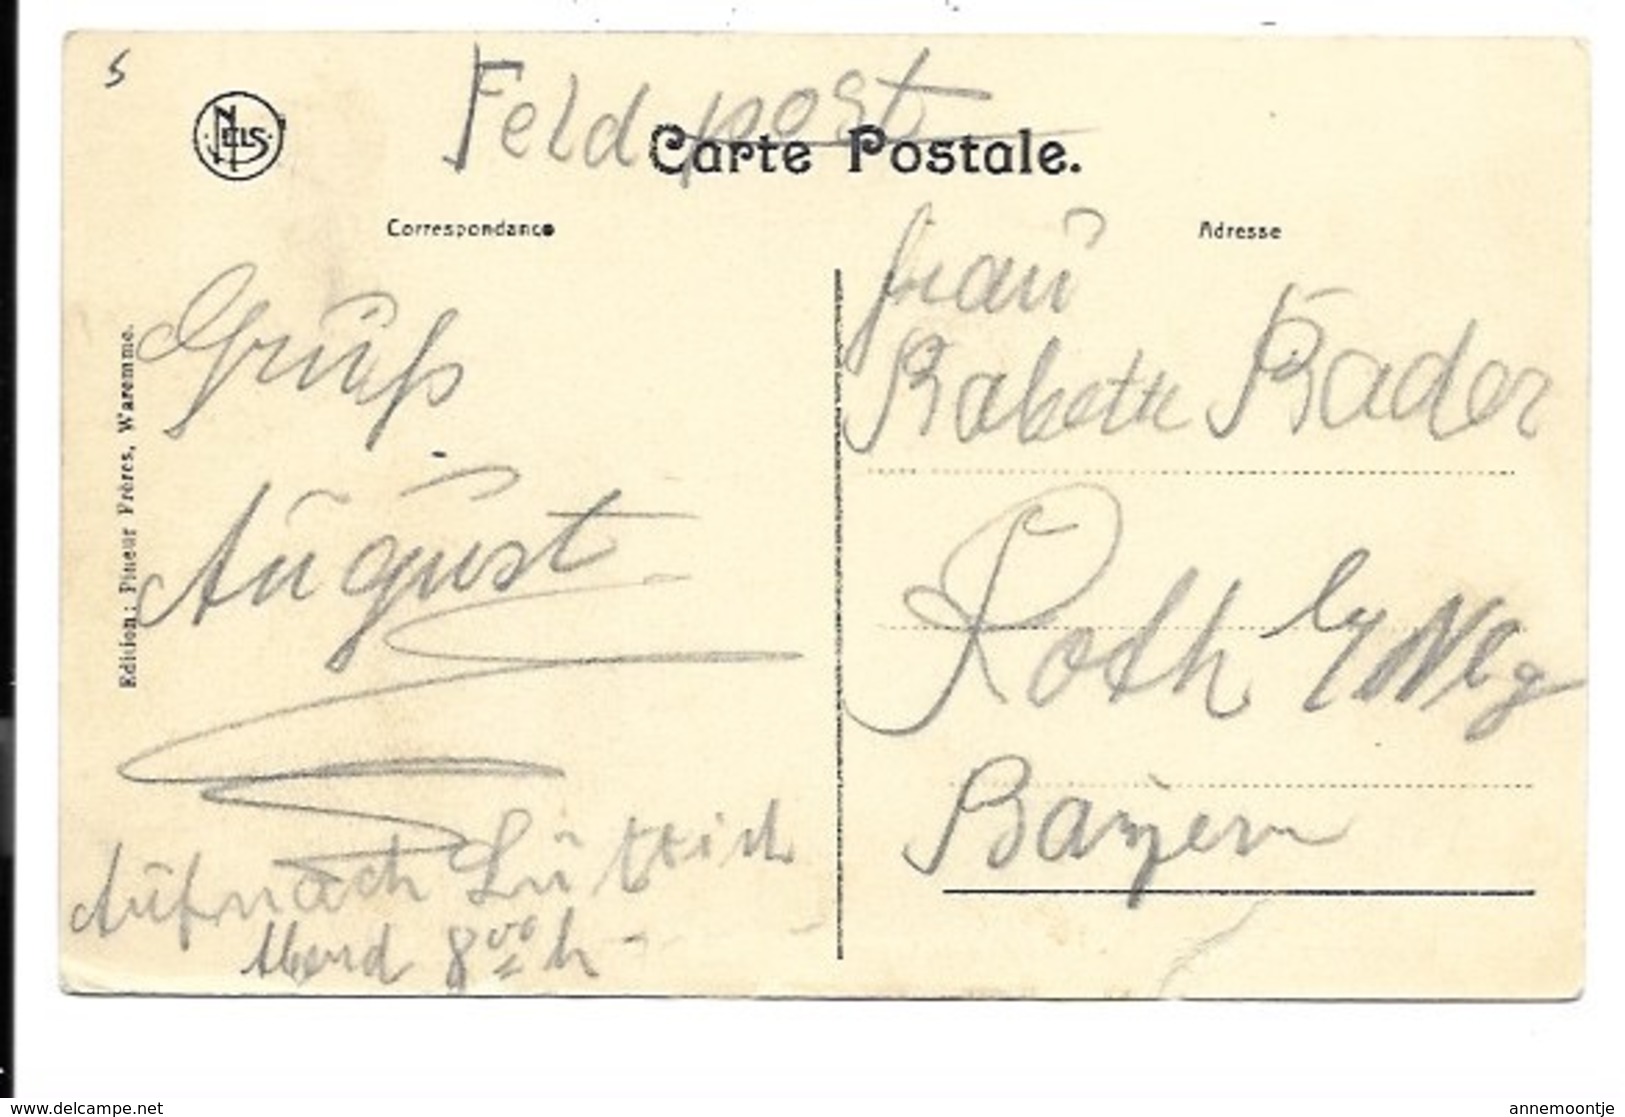 5
NELS
Feldpost
Carte Postale.
Correspondance
Adresse
Edition : Pineur Frères, Waremme.
Gruß
August
Auf nach Lüttich
Abend 8 00 h
Frau
Babette Bader
Roth b/ Nbg
Bayern
www.delcampe.net
annemoontje